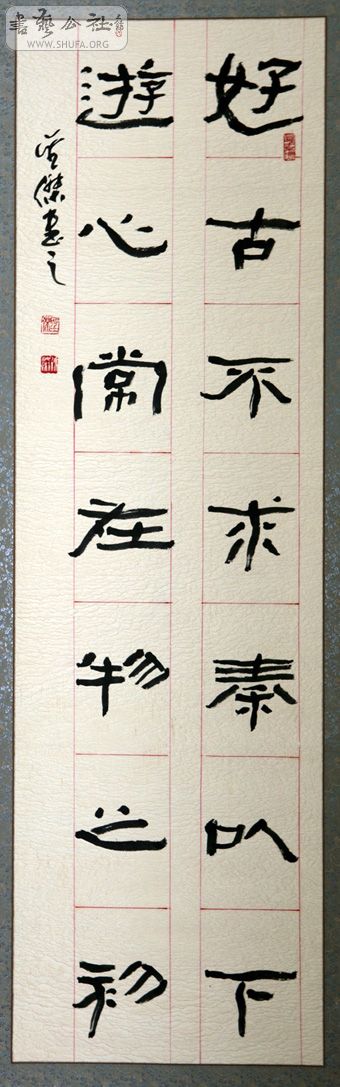 書藝公社
WWW.SHUFA.ORG
好古不求秦以下
遊心常在物之初
傑書之